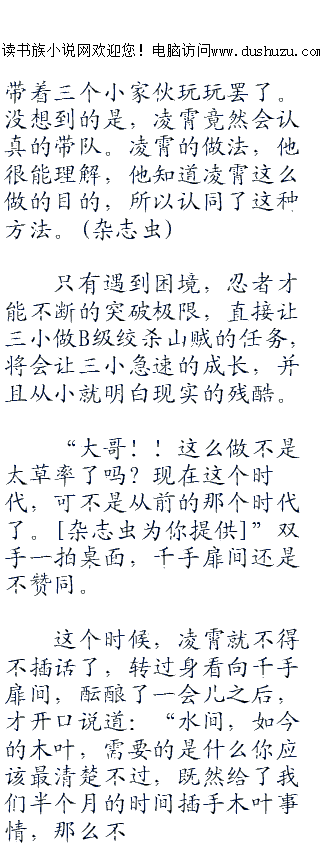 读书族小说网欢迎您！电脑访问www.dushuzu.com
带着三个小家伙玩玩罢了。
没想到的是，凌霄竟然会认
真的带队。凌霄的做法，他
很能理解，他知道凌霄这么
做的目的，所以认同了这种
方法。(杂志虫)
只有遇到困境，忍者才
能不断的突破极限，直接让
三小做B级绞杀山贼的任务，
将会让三小急速的成长，并
且从小就明白现实的残酷。
“大哥！！这么做不是
太草率了吗？现在这个时
代，可不是从前的那个时代
了。[杂志虫为你提供]”双
手一拍桌面，千手扉间还是
不赞同。
这个时候，凌霄就不得
不插话了，转过身看向千手
扉间，酝酿了一会儿之后，
才开口说道：“水间，如今
的木叶，需要的是什么你应
该最清楚不过，既然给了我
们半个月的时间插手木叶事
情，那么不